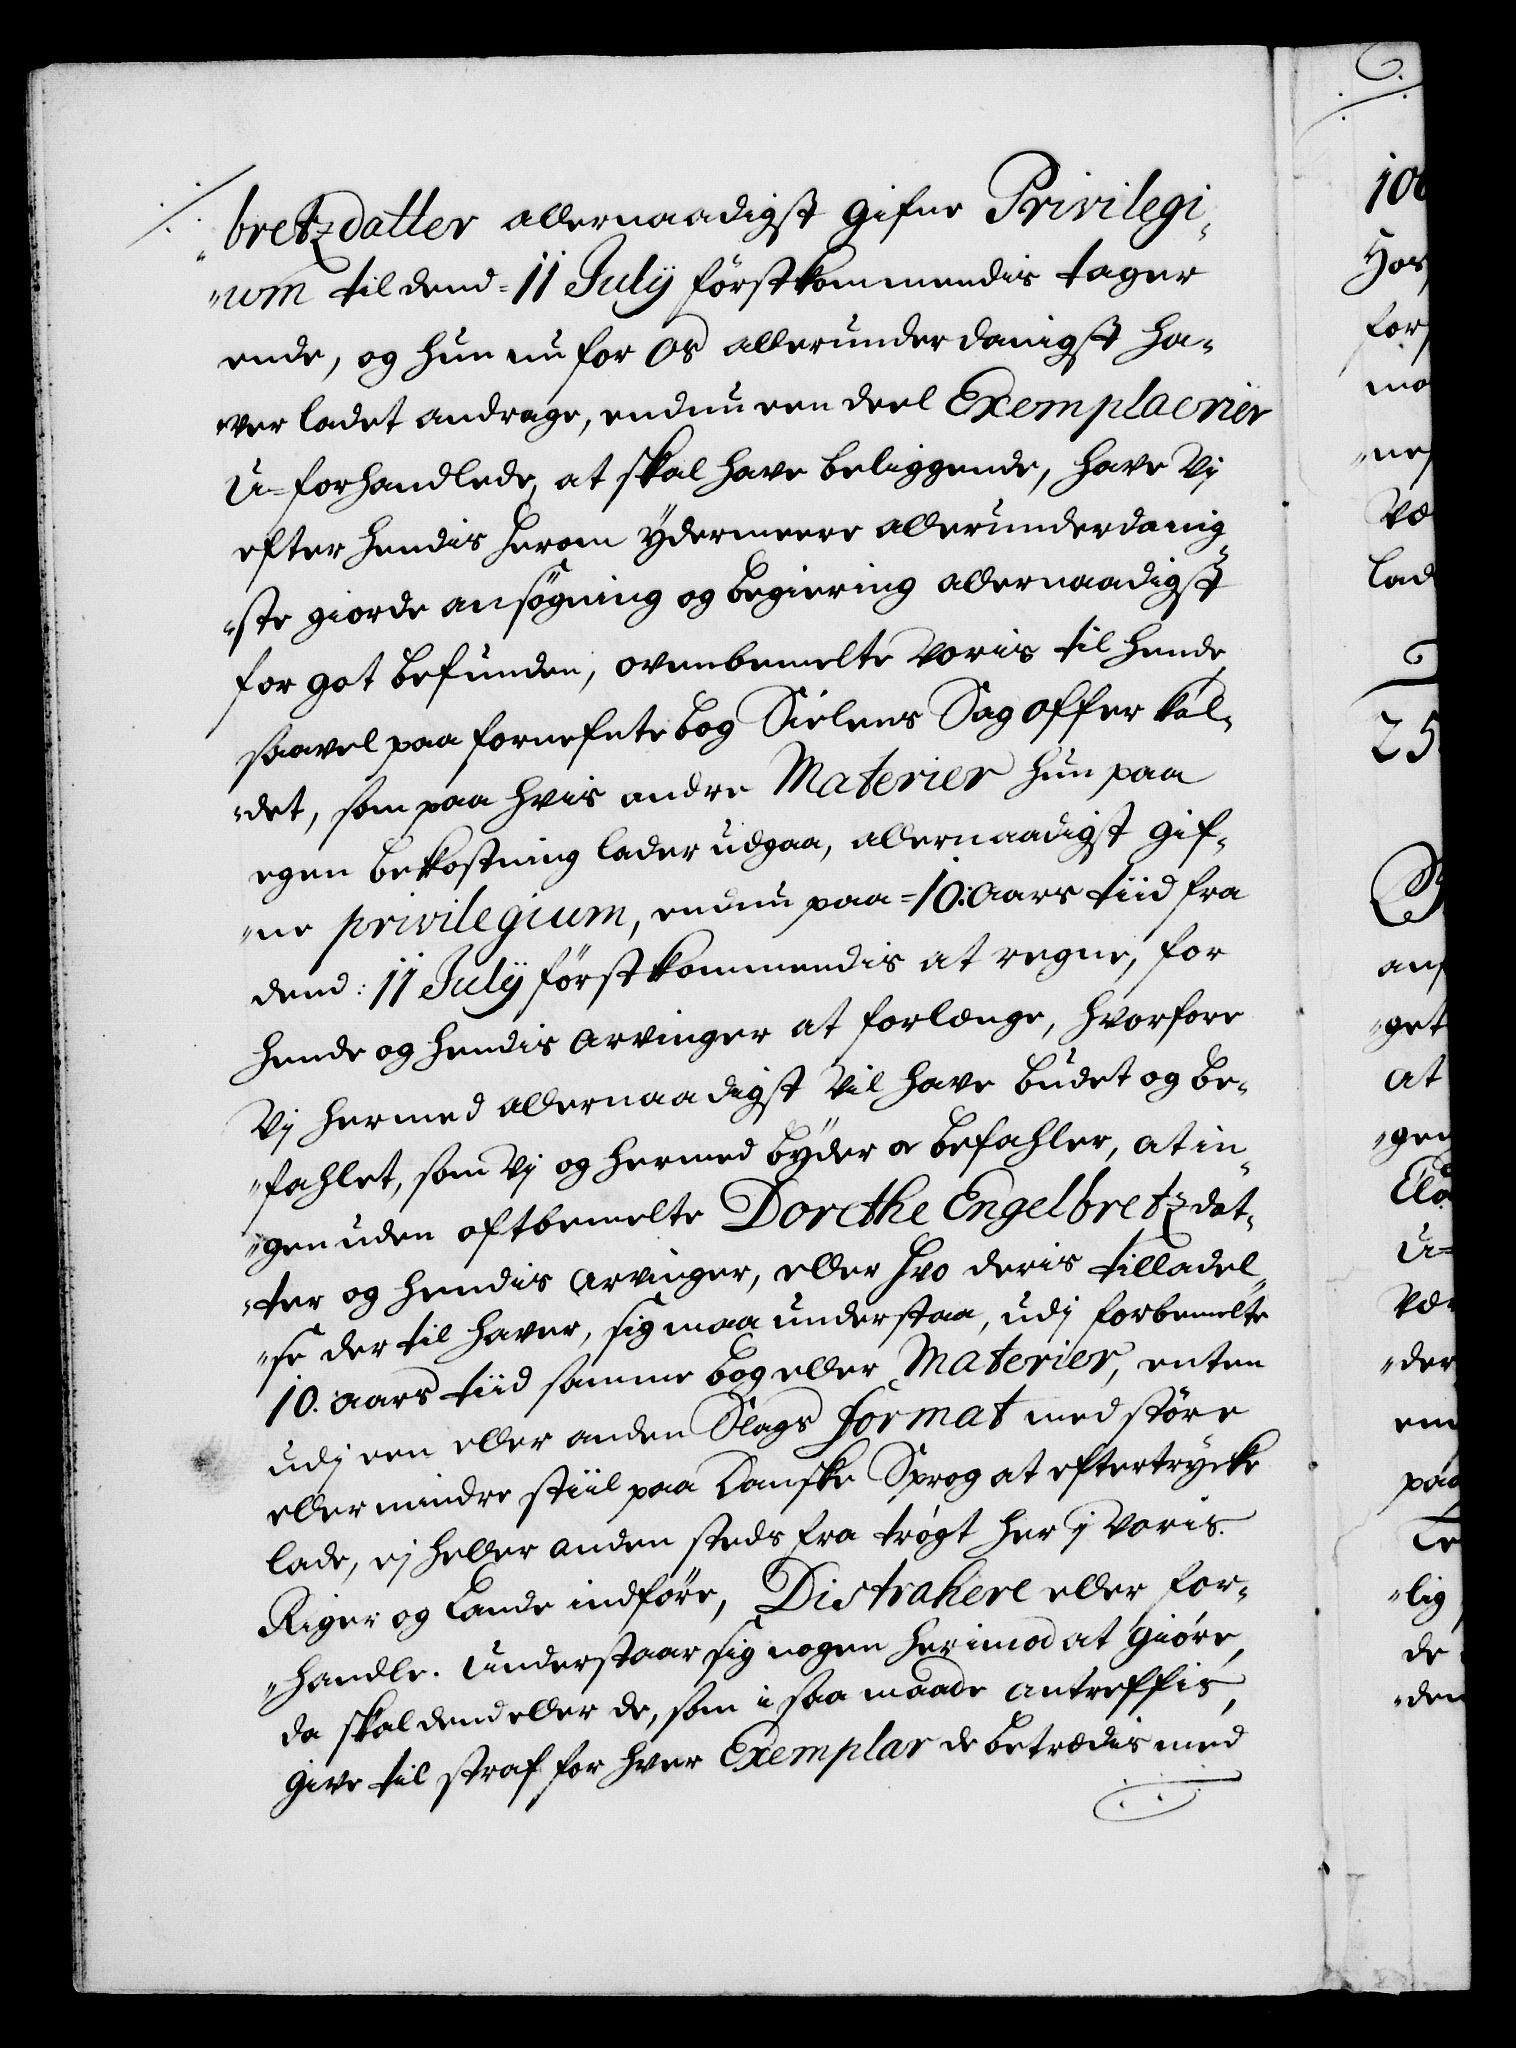 bretzdatter allernaadigst gifne Privilegi-
um til dend 11 July förstkommendis tager
ende, og hun nu for Os allerunderdanigst ha-
ver ladet andrage, endnu een deel Exemplaerier
U-forhandlede, at skal have beliggende, have Vj
efter hendis herom ydermeere allerunderdanig-
ste giorde ansögning og begiering allernaadigst
for got befunden, ovenbemelte Voris til hende
saavel paa fornefnte bog Sielens Sag offer kal-
det, som paa hvis andre Materier hun paa
egen bekostning lader udgaa, allernaadigst gif-
ne privilegium, endnu paa 10. Aars tiid fra
dend: 11 July förstkommendis at regne, for
hende og hendis Arvinger at forlænge, hvorfore
Vj hermed allernaadigst Vil have budet og be-
fahlet, som Vj og hermed byder oc befahler, at in-
gen uden oftbemelte Dorethe Engelbretzdat-
ter og hendis Arvinger, eller hvo deris tilladel-
se der til haver, sig maa understaa, udj forbemelte
10. Aars tiid samme bog eller Materier, enten
udj een eller anden Slags format med störe
eller mindre stiil paa Danske Sprog at eftertrycke
lade, ej heller anden steds fra trögt her j Voris
Riger og Lande indföre, Distrahere eller for-
handle. Understaar sig nogen herimod at giöre,
da skal dend eller de, som i saa maade antreffis,
give til straf for hver Exemplar de betrædis med
10
for
ne
Væ
lad
25
get
at
U-
Væ
der
paa
lig
de
den